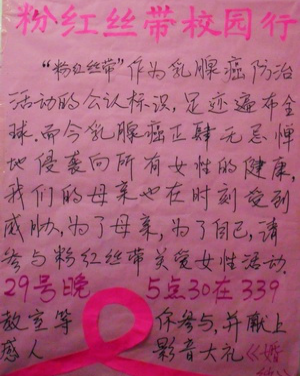 粉红丝带校园行
“粉红丝带”作为乳腺癌防治
活动的公认标识，足迹遍布全
球.而今乳腺癌正肆无忌惮
地侵袭向所有女性的健康，
我们的母亲也在时刻受到
威胁，为了母亲，为了自己，请
参与粉红丝带关爱女性活动.
29号晚 5点30在339
教室等 你参与，并献上
感人 影音大礼《婚